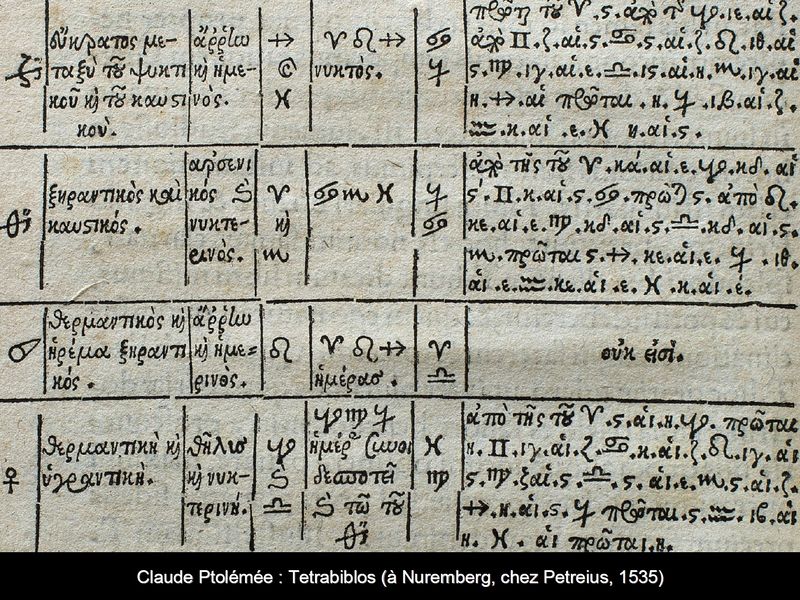 εὔκρατος με-
ταξὺ τοῦ ψυκτι
κοῦ ϗ τοῦ καυστι
κοῦ.
ἄῤῥην
ϗ ἡμε-
ρινός.
♐
♓
♈ ♌ ♐
νυκτὸς.
♋
♑
πρῶται τοῦ ♈. ϛ. ἀπὸ τῆς ♉. ιε. αἱ ζ.
ἀπὸ ♊. ζ. αἱ. ϛ. ♋. ϛ. αἱ. ζ. ♌. ιθ. αἱ
ϛ. ♍. ιγ. αἱ. ε. ♎. ιϛ. αἱ. η. ♏. ιγ. αἱ
η. ♐. αἱ πρῶται. η. ♑. ιβ. αἱ. ζ.
♒. κ. αἱ. ε. ♓ αἱ. ϛ.
ξηραντικὸς καὶ
καυστικός.
ἀρσενι
κὸς
νυκτε-
ρινὸς.
♈
ϗ
♏
♋ ♏ ♓
♑
♋
ἀπὸ τῆς τοῦ ♈. κά. αἱ. ε. ♉. κδ. αἱ
ϛ. ♊. κ. αἱ. ϛ. ♋. ϛ. ἀπὸ ♌.
κε. αἱ. ε. ♍ κδ. αἱ. ϛ. ♎. κδ. αἱ. ϛ.
♏. πρῶται ϛ. ♐. κε. αἱ. ε. ♑. ιθ.
αἱ. ε. ♒. κε. αἱ. ε. ♓. κ. αἱ. ε.
♂
θερμαντικὸς ϗ
ἠρέμα ξηραντι
κός.
ἄῤῥην
ϗ ἡμε-
ρινὸς.
♌
♈ ♌ ♐
ἡμέρας.
♈
♎
οὐκ εἰσὶ.
♀
θερμαντικὴ ϗ
ὑγραντικὴ.
θῆλυς
ϗ νυκ-
τερινή.
♉
♎
♉ ♍ ♑
δεσποτεῖ
τῶ τοῦ
♓
♍
ἀπὸ τῆς τοῦ ♈. ϛ. αἱ. η. ♉. πρῶται
η. ♊. ιγ. αἱ. ζ. ♋. κ. αἱ. ζ. ♌. ιγ. αἱ
ϛ. ♍. αἱ. ϛ. ♎. ϛ. αἱ. ε. ♏. ϛ. αἱ. ζ.
♐. η. αἱ. ϛ. ♑ πρῶται. ϛ. ♒. ιβ. αἱ
η. ♓. αἱ πρῶται. η.
Claude Ptolémée : Tetrabiblos (à Nuremberg, chez Petreius, 1535)